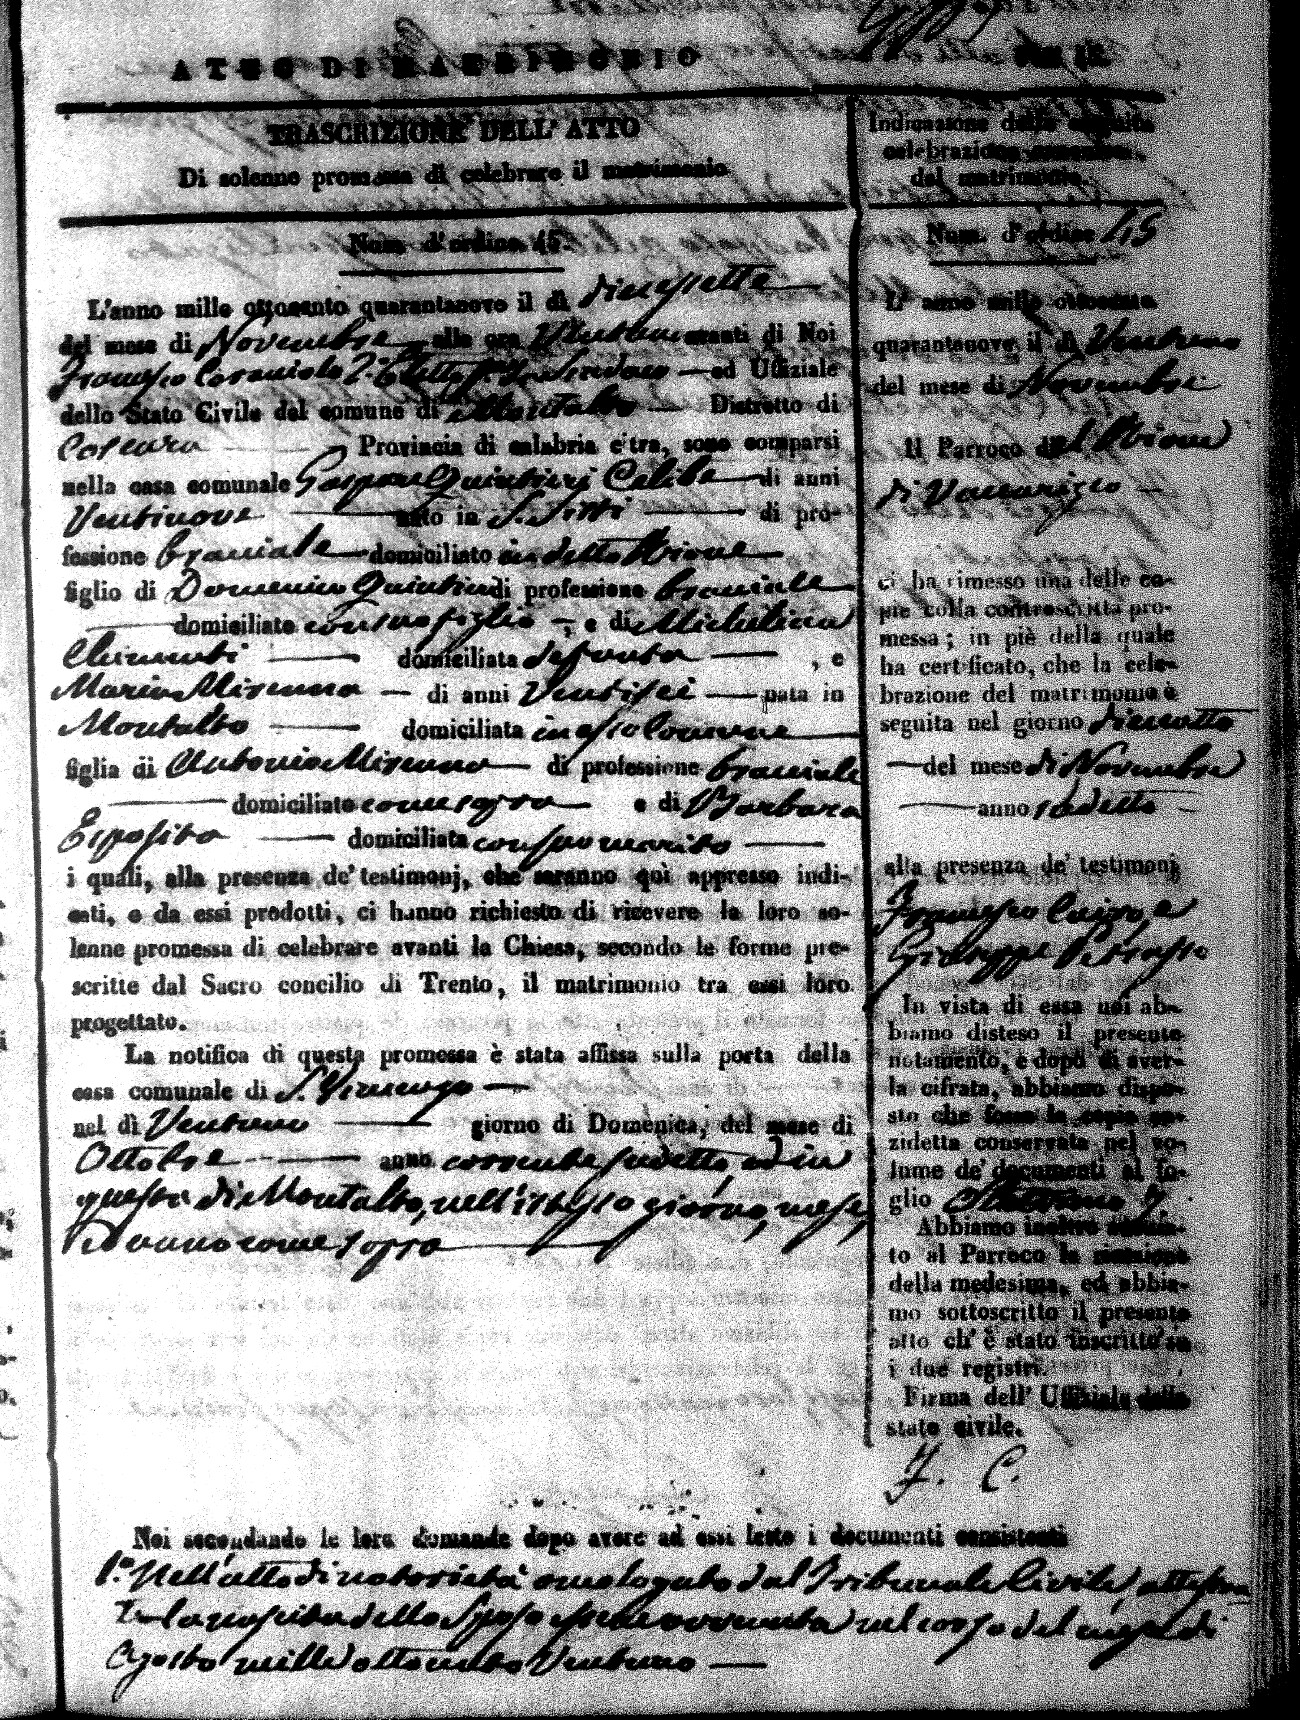 ATTO DI MATRIMONIO
TRASCRIZIONE DELL' ATTO
Di solenne promessa di celebrare il matrimonio
Num. d'ordine 45.
L'anno mille ottocento quarantanove il dì diecessette
del mese di Novembre alle ore Ventuno avanti di Noi
Francesco ed Uffiziale
dello Stato Civile del comune di Montalto Distretto di
Cosenza Provincia di calabria citra, sono comparsi
nella casa comunale Gaspare Quintieri Celibe di anni
Ventinove nato in S. Sisti di pro-
fessione bracciale domiciliato in detto Rione
figlio di Domenico Quintieri di professione bracciale
domiciliato con suo figlio, e di Michelina
Chimenti domiciliata defonta, e
Maria Mirenna di anni Ventisei nata in
Montalto domiciliata in esso Comune
figlia di Antonio Mirenna di professione bracciale
domiciliato come sopra e di Barbara
Esposito domiciliata con suo marito
i quali, alla presenza de' testimonj, che saranno quì appresso indi-
cati, e da essi prodotti, ci hanno richiesto di ricevere la loro so-
lenne promessa di celebrare avanti la Chiesa, secondo le forme pre-
scritte dal Sacro concilio di Trento, il matrimonio tra essi loro
progettato.
La notifica di questa promessa è stata affissa sulla porta della
casa comunale di S. Vincenzo
nel dì Ventuno giorno di Domenica, del mese di
Ottobre anno corrente sudetto, ed in
questa di Montalto, nell'istesso giorno, mese,
ed anno come sopra
Indicazione della seguita
celebrazione
del matrimonio.
Num. d'ordine 45
L' anno mille ottocento
quarantanove il dì Ventuno
del mese di Novembre
Il Parroco del Rione
di Vaccarizzo
ci ha rimesso una delle co-
pie colla controscritta pro-
messa; in piè della quale
ha certificato, che la cele-
brazione del matrimonio è
seguita nel giorno dieciotto
del mese di Novembre
anno sudetto
alla presenza de' testimonj
Francesco Cairo, e
Giuseppe Petrasso
In vista di essa noi ab-
biamo disteso il presente
notamento, e dopo di aver-
la cifrata, abbiamo dispo-
sto che fosse la copia su-
zidetta conservata nel vo-
lume de' documenti al fo-
glio
Abbiamo inoltre
to al Parroco la
della medesima, ed abbia-
mo sottoscritto il presente
atto ch' è stato inscritto su
i due registri.
Firma dell' Uffiziale dello
stato civile.
F. C.
Noi secondando le loro domande dopo avere ad essi letto i documenti consistenti
1.º Nell'atto di notorietà omologato dal Tribunale Civile, attestan
te la nascita dello Sposo essere avvenuta nel corso del mese di
Agosto mille ottocento Ventuno